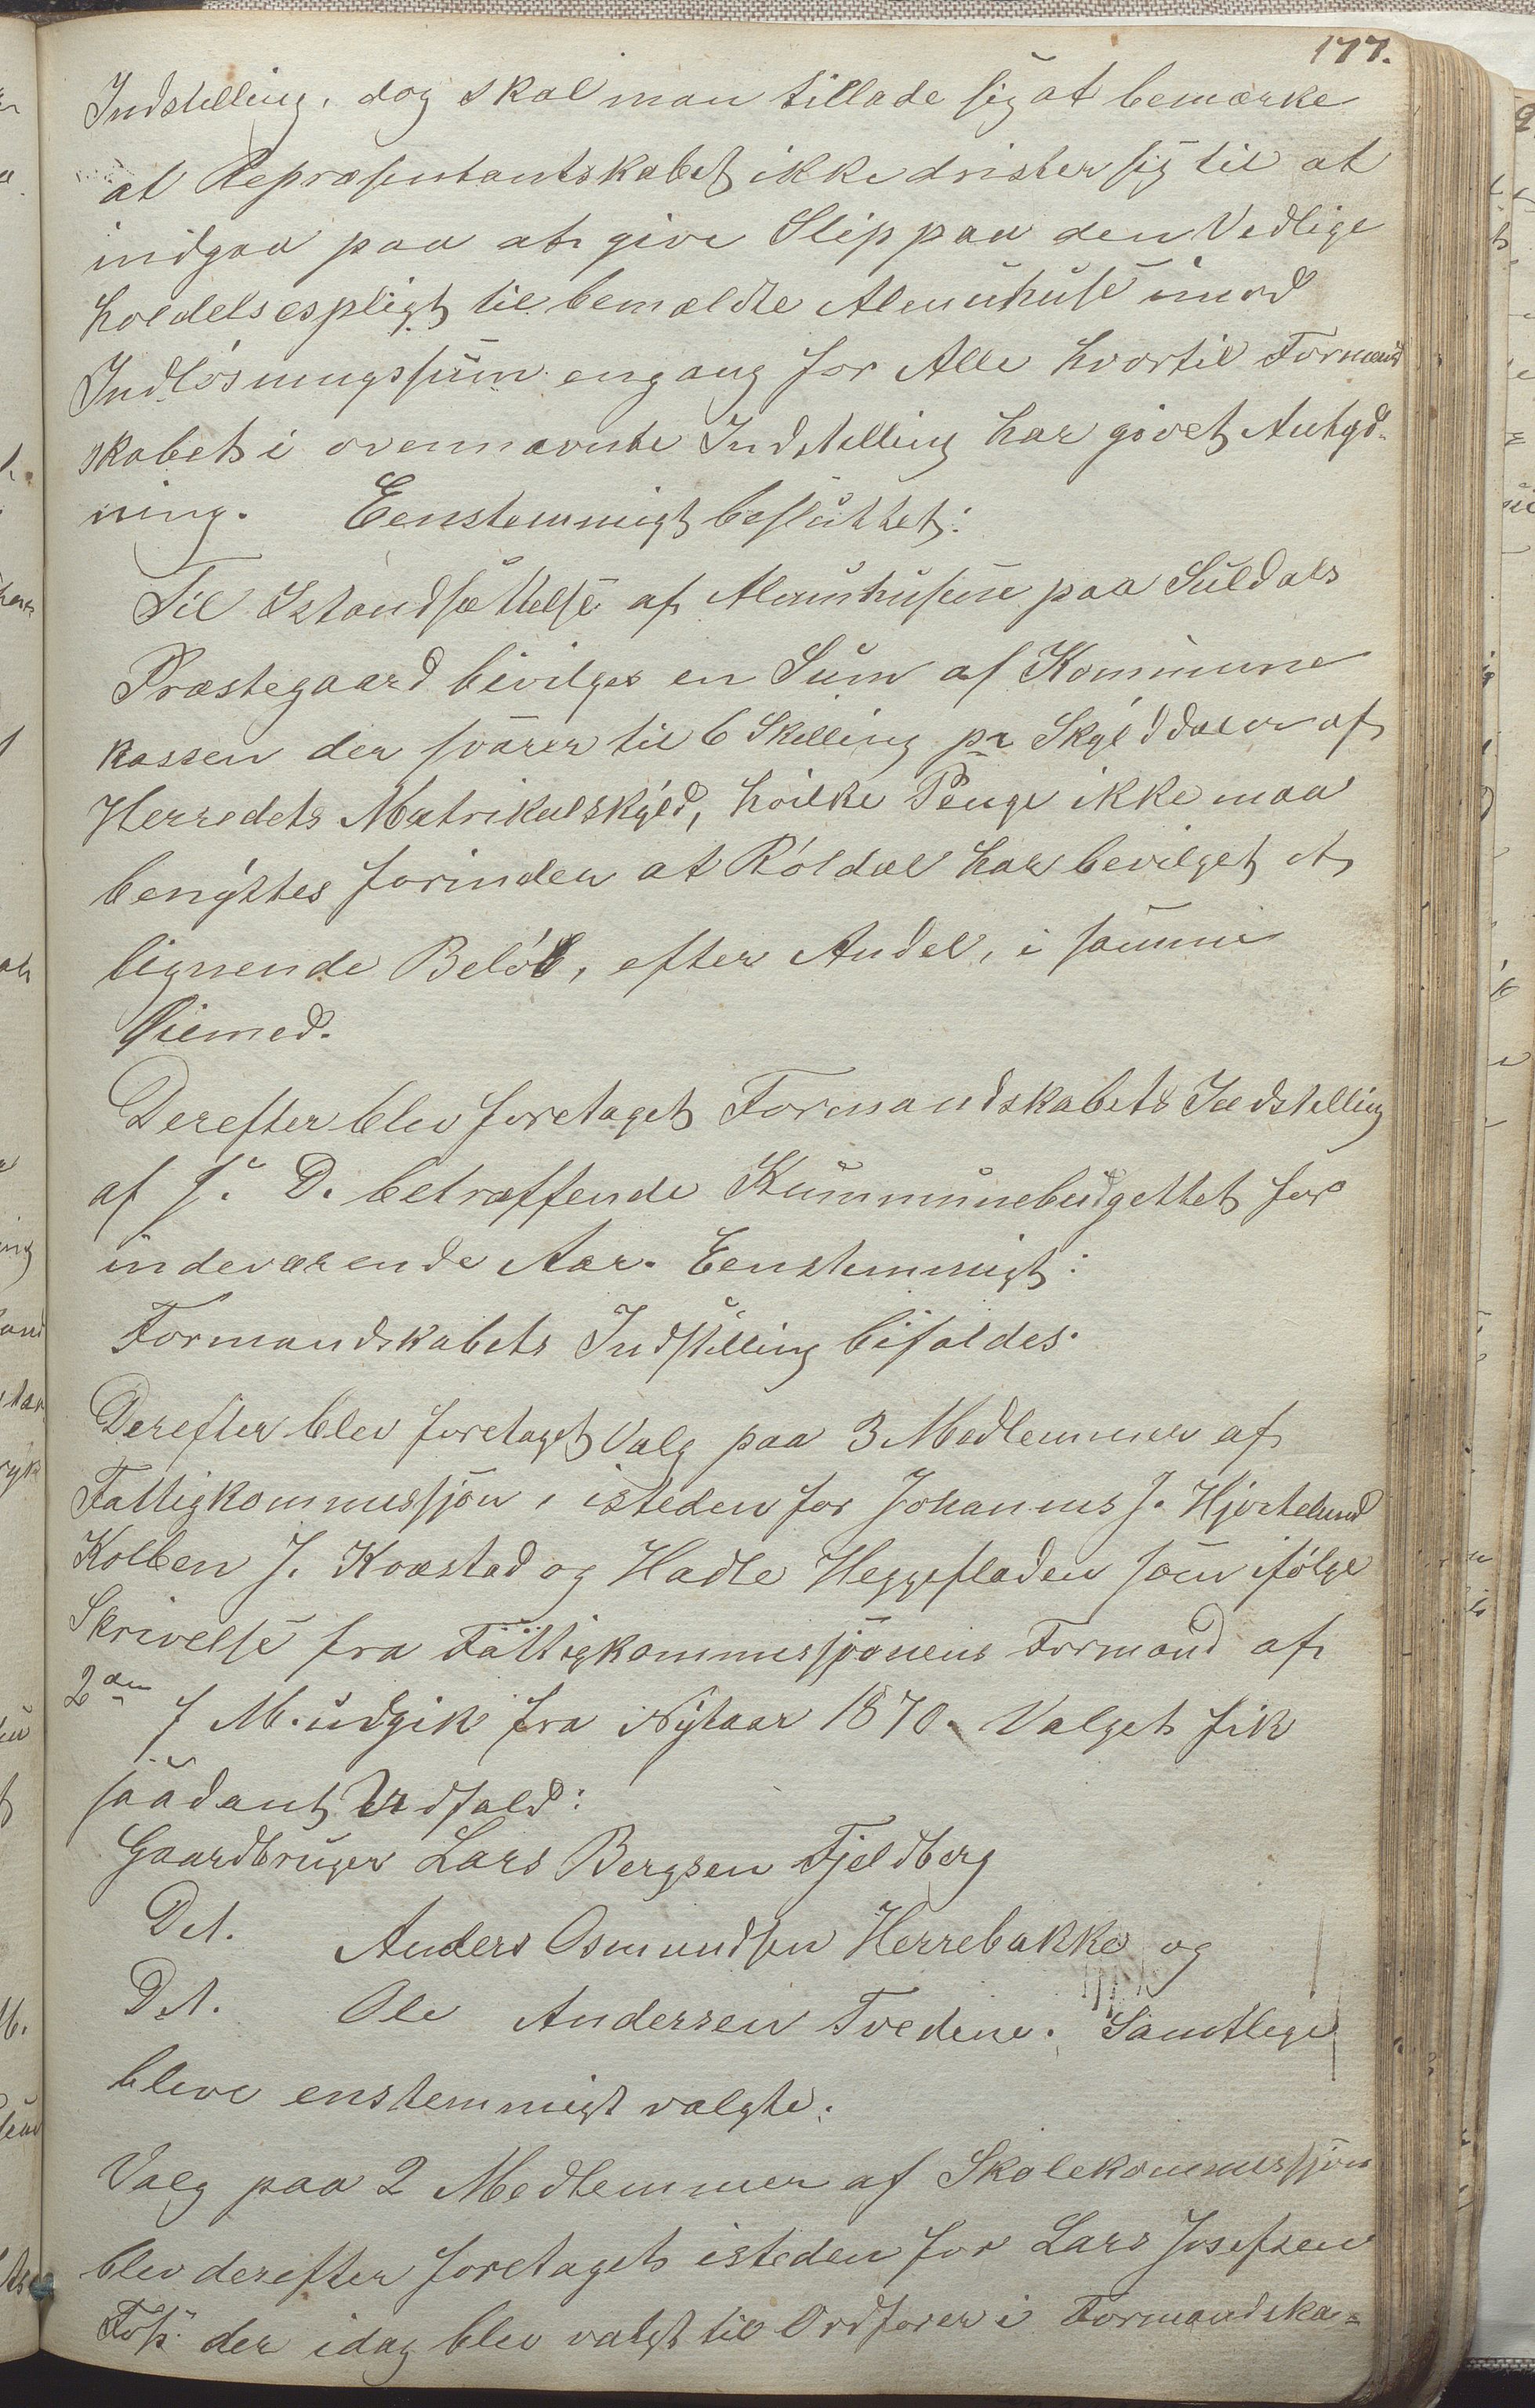 177.
Indstilling, dog skal man tillade sig at bemærke
at Repræsentantskabet ikke drister sig til at
indgaa paa at give Slip paa den Vedlige
holdelsespligt til bemældte Almuhuse imod
Indlösningssum engang for Alle hvortil Formand
skabet i ovennævnte Indstilling har givet Antyd-
ning. Eenstemmigt besluttet:
Til Istandsættelse af Almuhusene paa Suldals
Præstegaard bevilges en Sum af Kommune
kassen der svarer til 6 Skilling pr Skylddaler af
Herredets Matrikulskyld, hvilke Penge ikke maa
benyttes forinden at Röldal har bevilget et
lignende Belöb, efter Andel, i samme
Øiemed.
Derefter blev foretaget Formandskabets Indstilling
af J. D. betræffende Kummunebudgettet for
indeværende Aar. Eenstemmigt:
Formandskabets Indstilling bifaldes.
Derefter blev foretaget Valg paa 3 Medlemmer af
Fattigkommissjon, isteden for Johannes J. Hjortelund
Kolben J. Kvæstad og Hadle Heggefladen som ifölge
Skrivelse fra Fattigkommissjonens Formand af
2den f M. udgik fra Nytaar 1870. Valget fik
saadant Udfald:
Gaardbruger Lars Bergsen Fjeldberg
Dt. Anders Osmundsen Herrebakke og
Dt. Ole Andersen Tvedene. Samtlege
bleve enstemmigt valgte.
Valg paa 2 Medlemmer af Skolekommissjon
blev derefter foretaget isteden for Lars Josefsen
der idag blev valgt til Ordförer i Formandska=